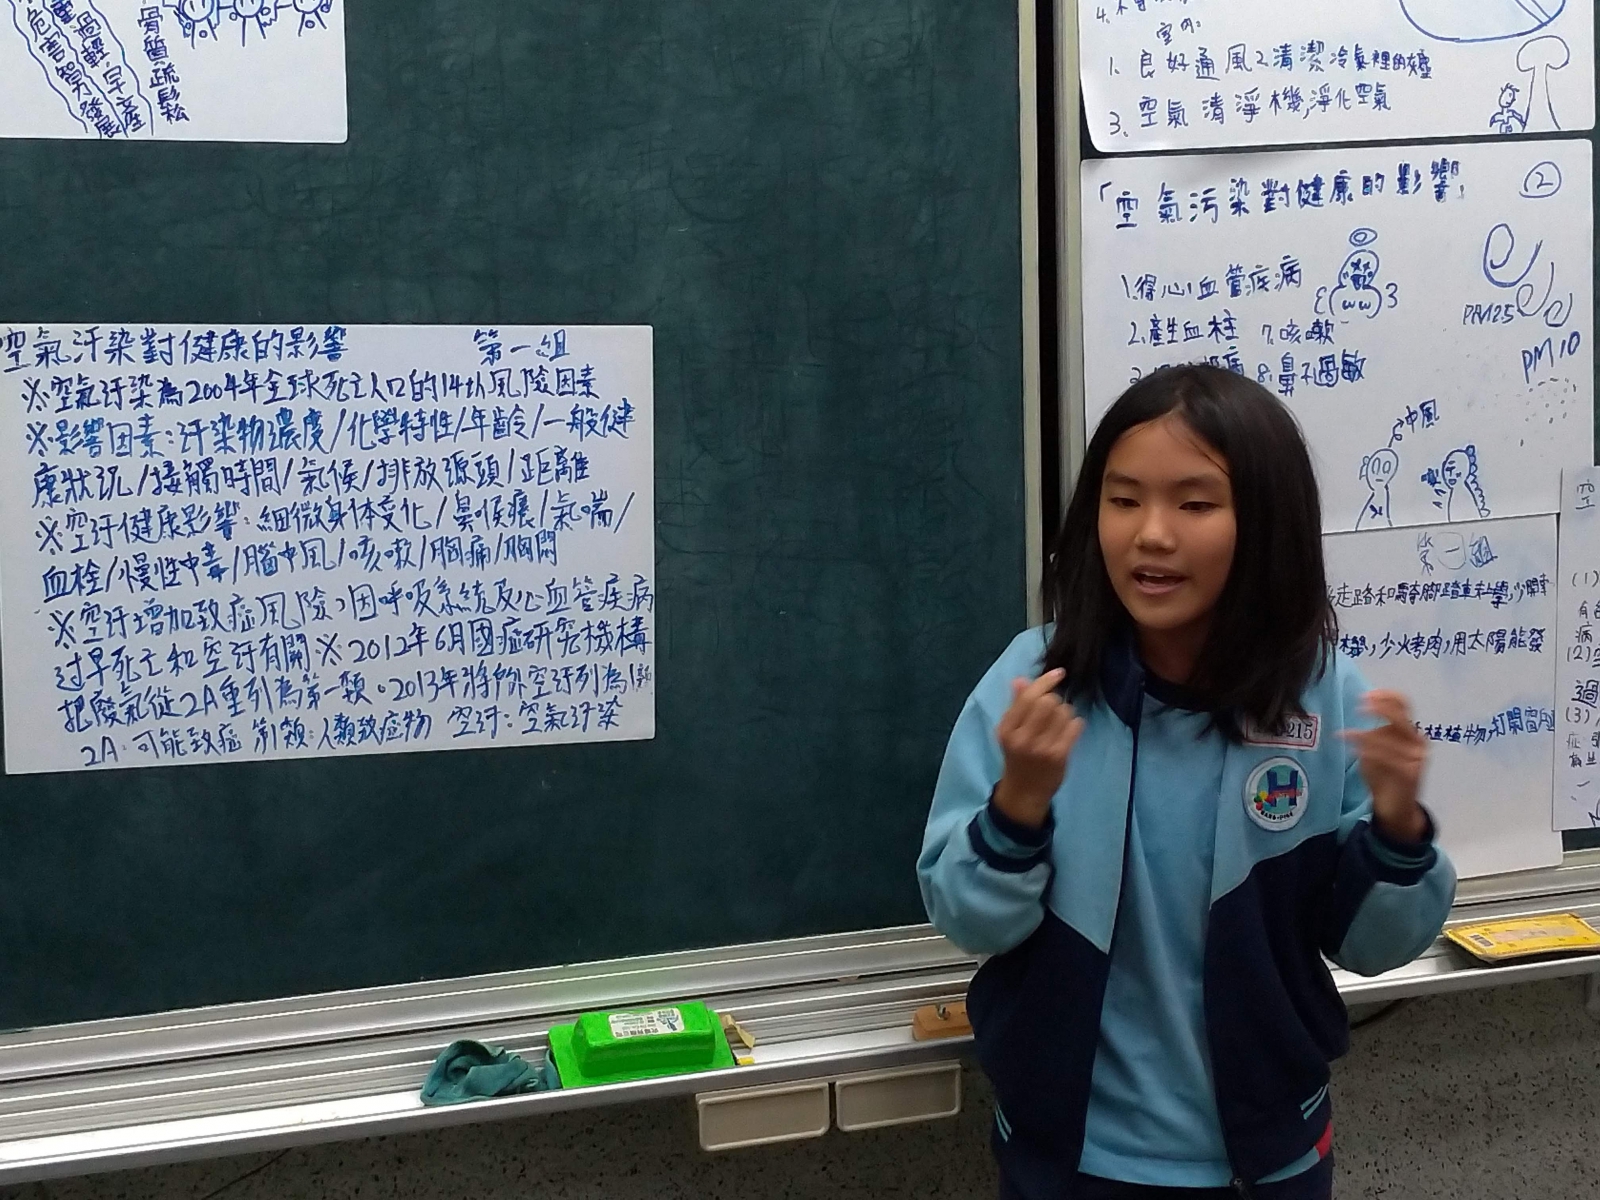 危害智力發展
過輕.早產
骨質疏鬆
空氣汙染對健康的影響 第一組
※空氣汙染為2004年全球死亡人口的14位風險因素
※影響因素:汙染物濃度/化學特性/年齡/一般健
康狀況/接觸時間/氣候/排放源頭/距離
※空汙健康影響:細微身体變化/鼻喉癢/氣喘/
血栓/慢性中毒/腦中風/咳嗽/胸痛/胸悶
※空汙增加致癌風險,因呼吸系統及心血管疾病
过早死亡和空汙有關※2012年6月國癌研究機構
把廢氣從2A重列為第一類。2013年將戶外空汙列為1類
2A:可能致癌 第1類:人類致症物 空汙:空氣汙染
室內:
1. 良好通風2.清潔冷氣裡的灰塵
3. 空氣清淨機,淨化空氣
「空氣污染對健康的影響」 ②
1.得心血管疾病
2.產生血栓 7.咳嗽
8.鼻子過敏
PM2.5
PM10
中風
第一組
走路和騎腳踏車去學,少開車
少火考肉,用太陽能發
植植物,打開窗戶
(1)
(2)
(3)
215